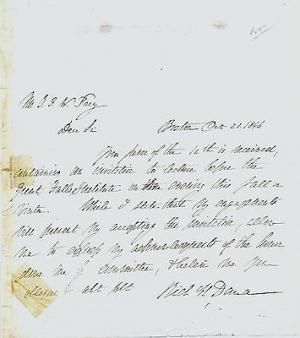 Mr. J. W. Frey
Dear Sir Boston Oct 21. 1846
Your favor of the 12th is received,
containing an invitation to lecture before the
Great Falls Institute in the evening this fall or
winter. While I state that my engagements
will prevent my accepting the invitation, allow
me to express my acknowledgments of the honor
done me by committee, & believe me
Rich. H. Dana Jr